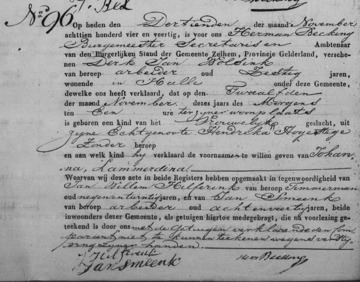 No. 96.
Op heden den Dertienden der maand November
achttien honderd vier en veertig, is voor ons Herman Becking
Burgemeester Secretaris en Ambtenaar
van den Burgerlijken Stand der Gemeente Zelhem, Provincie Gelderland, versche-
nen Derk Jan
van beroep arbeider oud Zestig jaren,
wonende in Halle onder deze Gemeente,
dewelke ons heeft verklaard, dat op den Twaalfden
der maand November dezes jaars des Morgens
ten Een ure ter zijner woonplaats
is geboren een kind van het Vrouwelijk geslacht, uit
zijne Echtgenoote Hendrika
Zonder beroep
en aan welk kind hij verklaard de voornamen te willen geven van Johan
na,
Waarvan wij deze acte in beide Registers hebben opgemaakt in tegenwoordigheid van
Jan Willem van beroep Timmerman
oud negen en twintig jaren, en van Jan Smeenk
van beroep arbeider oud acht en veertig jaren, beide
inwoonders dezer Gemeente, als getuigen hiertoe medegebragt, die na voorlezing ge-
teekend is door ons met de Getuigen verklarende de Com
parant niet te kunnen teekenen wegens
zijner handen.
Jan Smeenk
Becking